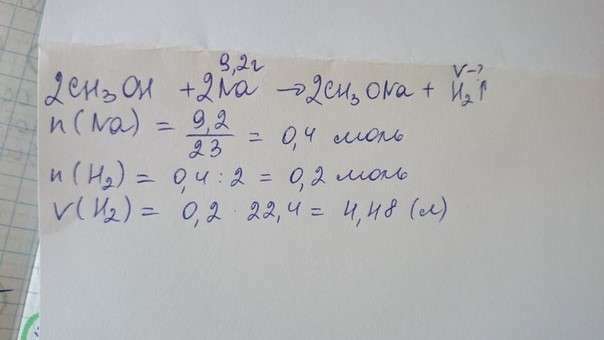 9,2г V-?
2CH₃OH + 2Na → 2CH₃ONa + H₂↑
n(Na) = 9,2/23 = 0,4 моль
n(H₂) = 0,4 : 2 = 0,2 моль
V(H₂) = 0,2 · 22,4 = 4,48 (л)